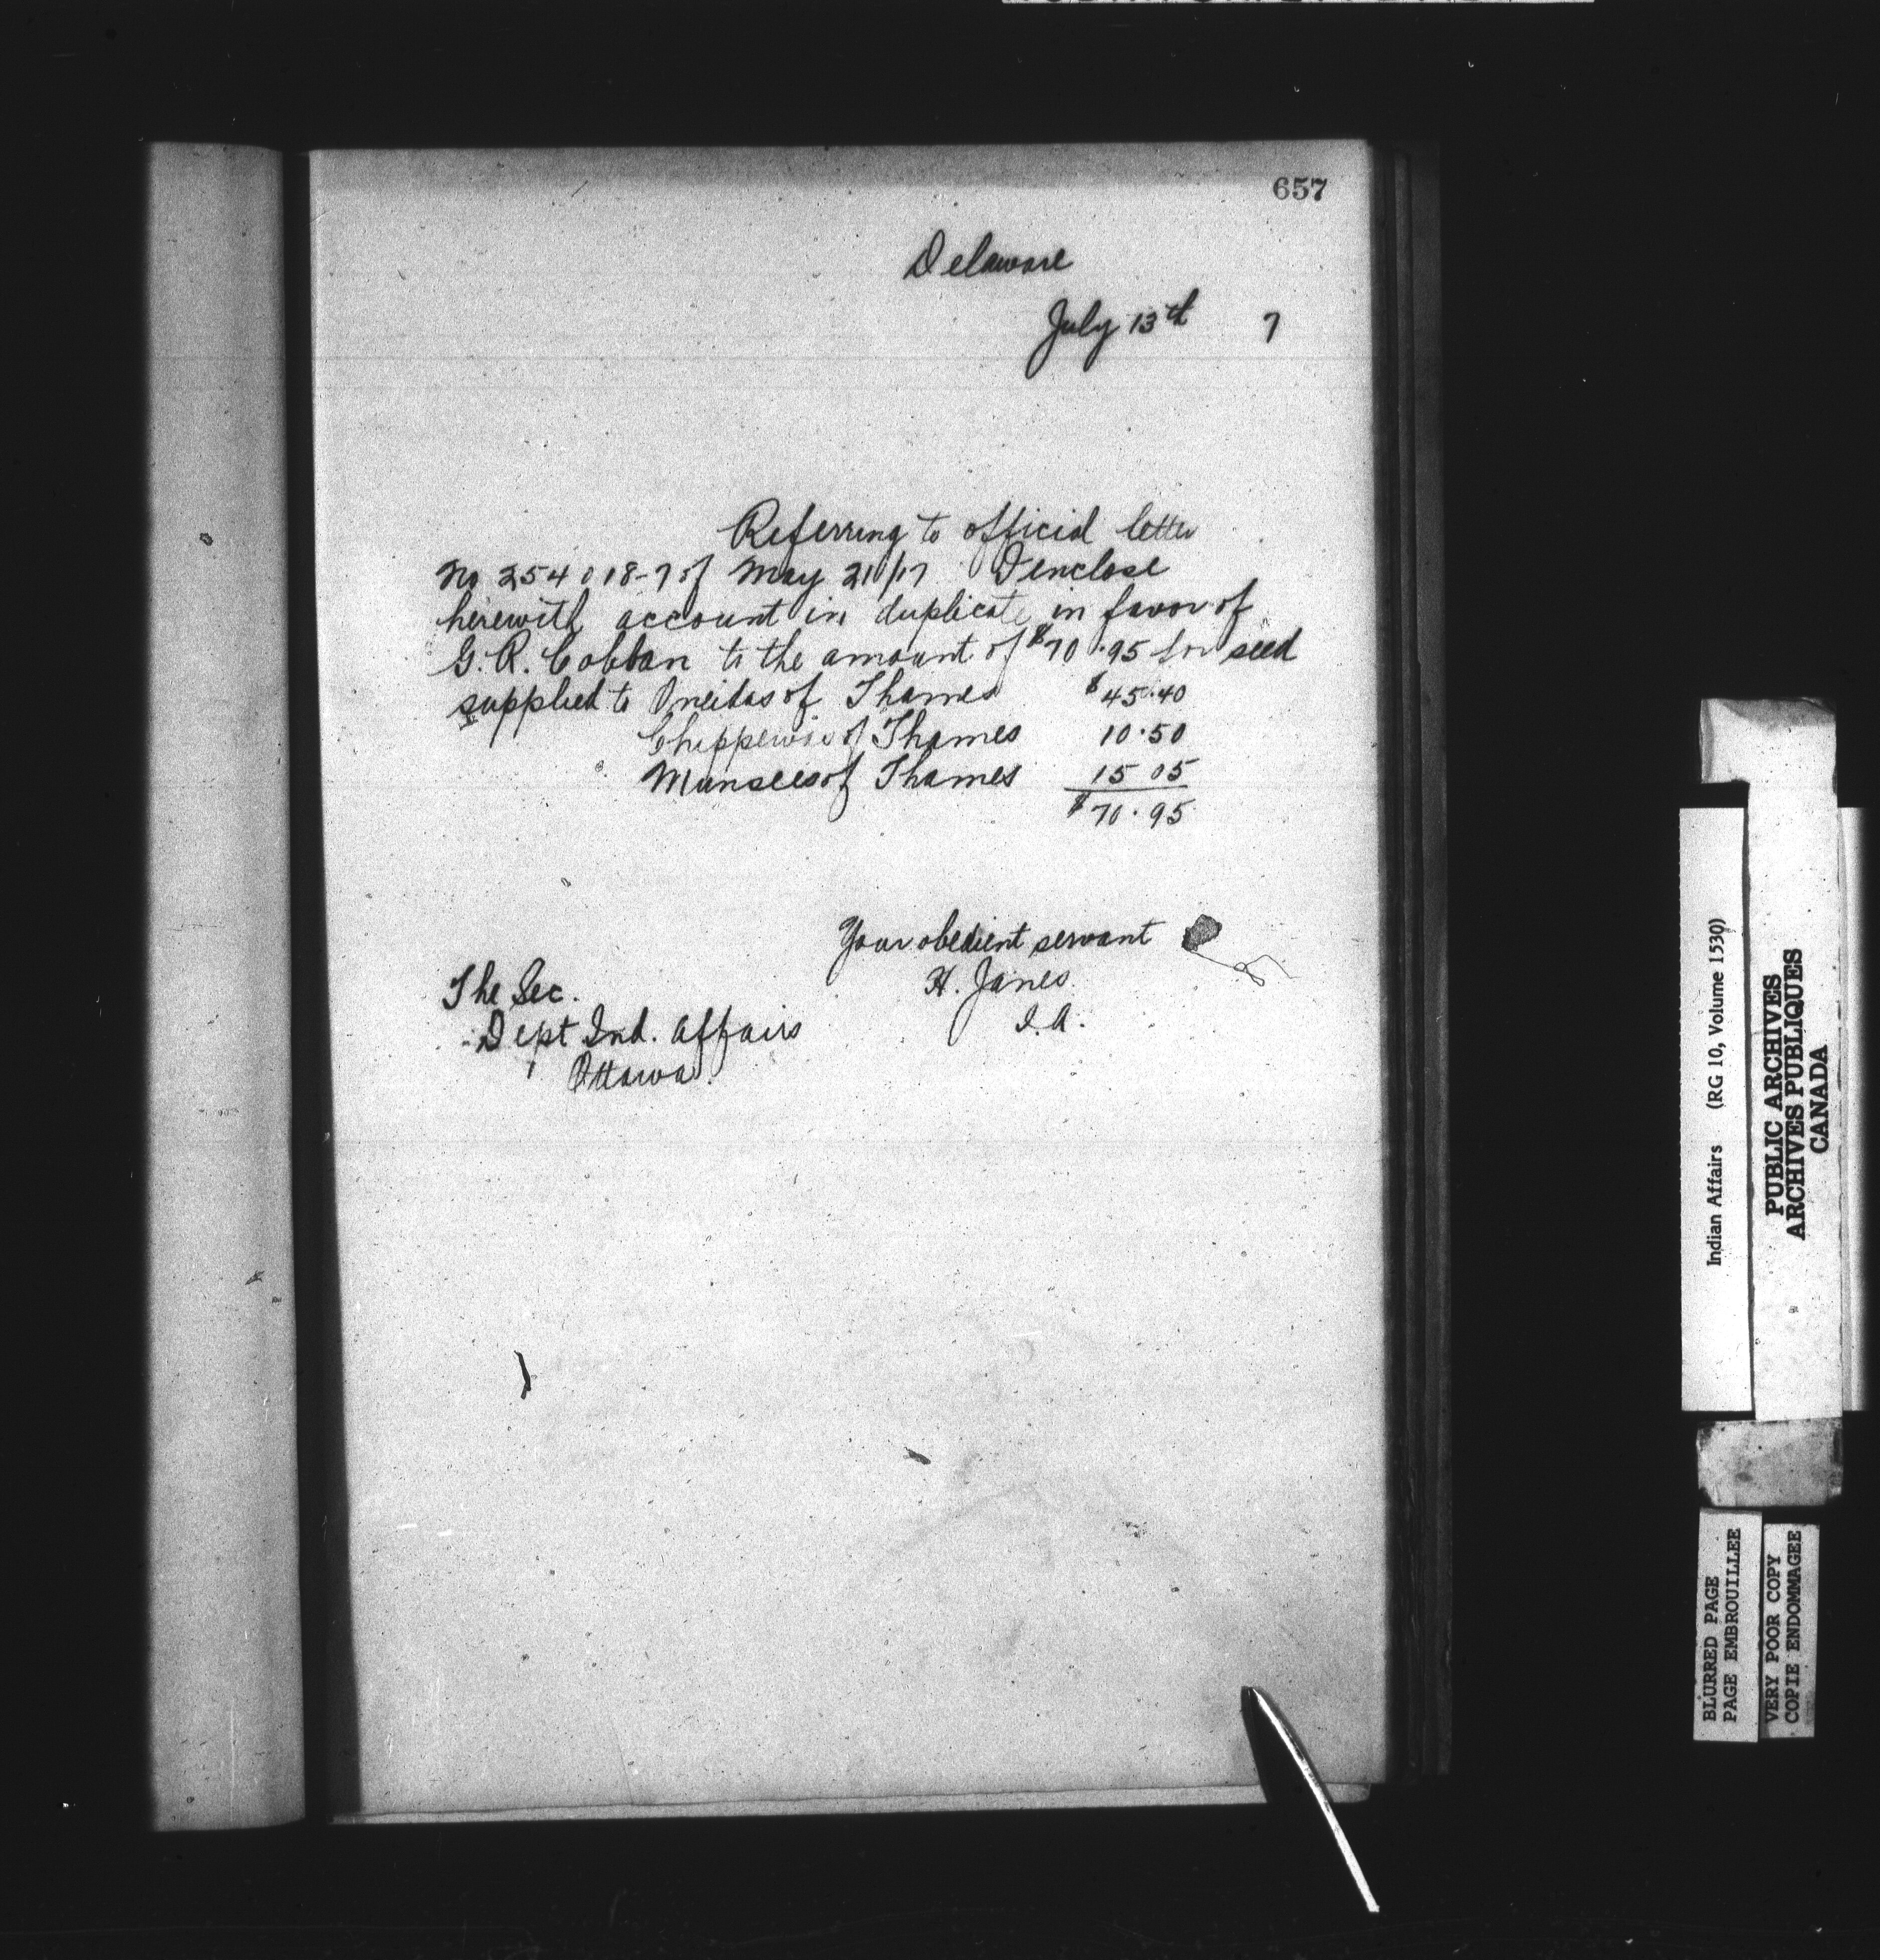 657
Delaware
July 13th 7
Referring to official letter
No 254018-7 of May 21/17 I enclose
herewith account in duplicate in favor of
G. R. Cobban to the amount of $70.95 for seed
supplied to Oneidas of Thames $45.40
Chippewas of Thames 10.50
Munsees of Thames 15 05
$70.95
Your obedient servant
H. Janes
I.A.
The Sec.
Dept Ind. Affairs
Ottawa.
Indian Affairs (RG 10, Volume 1530)
PUBLIC ARCHIVES
ARCHIVES PUBLIQUES
CANADA
BLURRED PAGE
PAGE EMBROUILLEE
VERY POOR COPY
COPIE ENDOMMAGEE